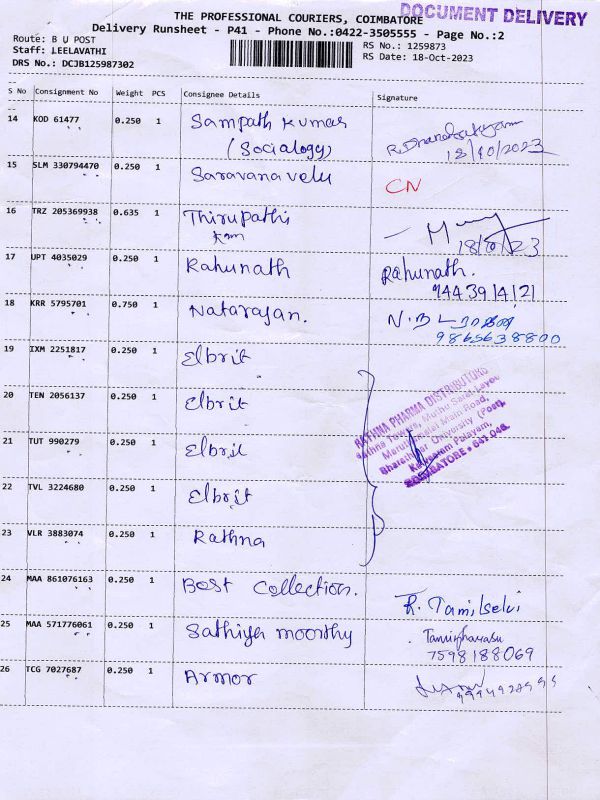 DOCUMENT DELIVERY
THE PROFESSIONAL COURIERS, COIMBATORE
Delivery Runsheet - P41 - Phone No.:0422-3505555 - Page No.:2
Route: B U POST
RS No.: 1259873
Staff: LEELAVATHI
RS Date: 18-Oct-2023
DRS No.: DCJB125987302
S No Consignment No Weight PCS Consignee Details Signature
14 KOD 61477 0.250 1 Sampath Kumar
(Socialogy)
18/10/2023
15 SLM 330794470 0.250 1 Saravanavelu CN
16 TRZ 205369938 0.635 1 Thirupathi
18/10/23
17 UPT 4035029 0.250 1 Rahunath Rahunath.
18 KRR 5795701 0.750 1 Natarajan.
9865638800
19 IXM 2251817 0.250 1 Elbrit
20 TEN 2056137 0.250 1 Elbrit
21 TUT 990279 0.250 1 Elbrit
22 TVL 3224680 0.250 1 Elbrit
23 VLR 3883074 0.250 1 Rathna
RATHNA PHARMA DISTRIBUTORS
Rathna Towers, Muthu Sarai Layout
Maruthamalai Main Road,
Bharathiar University (Post),
Kalveeram Palayam,
COIMBATORE - 641 046.
24 MAA 861076163 0.250 1 Best Collection. R. Tamilselvi
25 MAA 571776061 0.250 1 Sathiya moorthy
7598188069
26 TCG 7027687 0.250 1 Armor